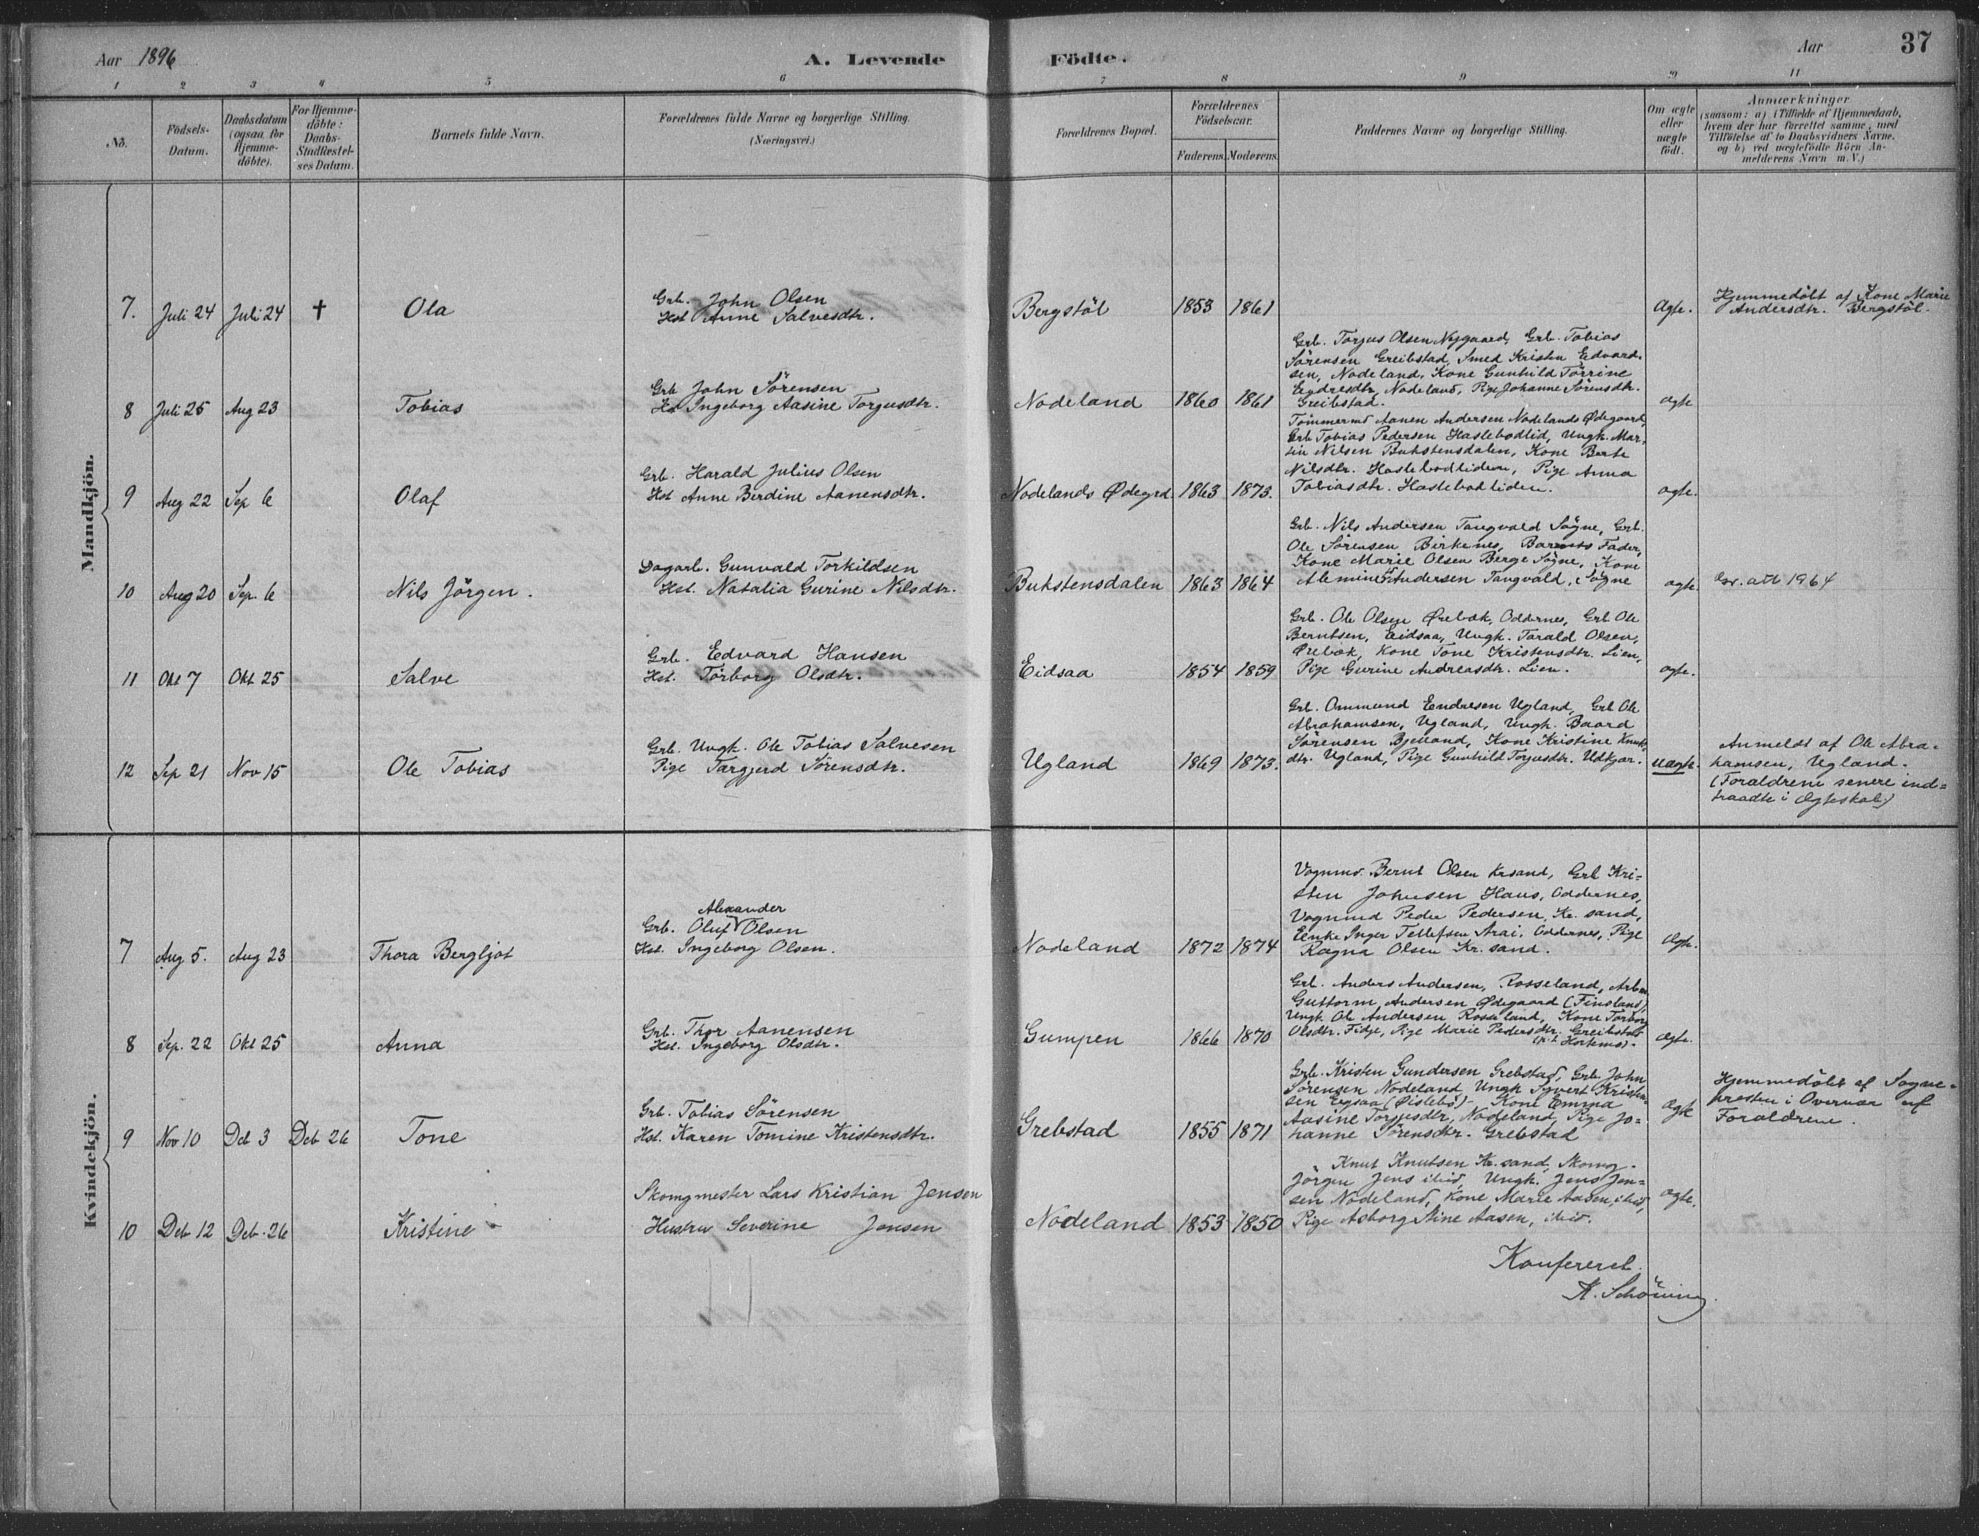 Aar 1896
A. Levende
Födte.
Aar
37
1
2
3
4
5
6
7
8
9
10
11
No.
Födsels-Datum.
Daabsdatum (ogsaa for Hjemme-döbte).
For Hjemme-döbte: Daabs-Stadfæstel-ses Datum.
Barnets fulde Navn.
Forældrenes fulde Navne og borgerlige Stilling. (Næringsvei.)
Forældrenes Bopæl.
Forældrenes Födselsaar.
Faderens. Moderens.
Faddernes Navne og borgerlige Stilling.
Om ægte eller uægte födt.
Anmærkninger
(saasom: a) i Tilfælde af Hjemmedaab,
hvem der har forrettet samme, med
Tilföielse af to Daabsvidners Navne.
og b) ved uægtefödte Börn An-
melderens Navn m. V.)
Mandkjön.
7. Juli 24 Juli 24 † Ola
Grb. John Olsen
Hst. Anne Salvesdtr.
Bergstöl 1853 1861
Ægte.
Hjemmedöbt af Kone Marie
Andersdtr. Bergstöl.
8 Juli 25 Aug 23 Tobias
Grb John Sörensen
Hst Ingeborg Aasine Torgusdtr.
Nodeland 1860 1861
Grb. Torjus Olsen Nygaard, Grb. Tobias
Sörensen Greibstad, Smed Kristen Edvard-
sen, Nodeland, Kone Gunhild Torrine
Endresdtr, Nodeland, Pige Johanne Sörensdtr.
Greibstad.
ægte
9 Aug 22 Sep 6 Olaf
Grb. Harald Julius Olsen
Hst Anne Berdine Aanensdtr.
Nodelands Ødegrd 1863 1873.
Tömmermd Aanen Andersen Nodelands Ødegaard,
Grb Tobias Pedersen Haslebodlid, Ungk. Mar-
tin Nilsen Bukstensdalen, Kone Berte
Nilsdtr. Haslebodliden, Pige Anna
Tobiasdtr. Haslebodliden.
ægte.
10 Aug 20 Sep. 6 Nils Jörgen.
Dagarb. Gunvald Torkildsen
Hst. Natalia Gurine Nilsdtr.
Bukstensdalen 1863 1864
Grb. Nils Andersen Tangvald Sögne, Grb.
Ole Sörensen Birkenes, Barnets Fader,
Kone Marie Olsen Berge Sögne, Kone
Andersen Tangvald, Sögne
ægte.
att 1964
11 Okt 7 Okt 25 Salve
Grb. Edvard Hansen
Hst. Torborg Olsdtr.
Eidsaa 1854 1859
Grb. Ole Olsen Ørebæk, Oddernes, Grb Ole
Berntsen, Eidsaa, Ungk. Tarald Olsen,
Ørebæk, Kone Tone Kristensdtr. Lien,
Pige Gurine Andreasdtr. Lien.
ægte.
12 Sep 21 Nov 15 Ole Tobias
Grb. Ungk. Ole Tobias Salvesen
Pige Targjerd Sörensdtr.
Ugland 1869 1873.
Grb. Ommund Endresen Ugland, Grb Ole
Abrahamsen, Ugland, Ungk. Baard
Sörensen Bjelland, Kone Kristine Knuts-
dtr. Ugland, Pige Gunhild Torjusdtr. Udkjær.
uægte.
Anmeldt af Ole Abra-
hamsen, Ugland.
(Forældrene senere ind-
traadte i Ægteskab)
Kvindekjön.
7 Aug 5. Aug 23 Thora Bergljot
Alexander
Grb. Oluf Olsen
Hst. Ingeborg Olsen.
Nodeland 1872 1874
Vognmd. Bernt Olsen Krsand, Grb Kri-
sten Johnsen Haus, Oddernes,
Vognmd Peder Pedersen, Kr. sand,
Enke Inger Tellefsen Arai, Oddernes, Pige
Ragna Olsen Kr. sand.
Ægte.
8 Sep. 22 Okt 25 Anna
Grb. Thor Aanensen
Hst. Ingeborg Olsdtr.
Gumpen 1866 1870
Grb. Anders Andersen, Rosseland, Arb.
Guttorm Andersen Ødegaard (Finsland)
Ungk. Ole Andersen Rosseland, Kone Torborg
Olsdtr. Fidje, Pige Marie Pedersdtr. Greibstad
Ægte.
9 Nov 10 Dcb 3 Dcb 26 Tone
Grb. Tobias Sörensen
Hst. Karen Tomine Kristensdtr.
Grebstad 1855 1871
Grb. Kristen Gundersen Grebstad, Grb. John
Sörensen Nodeland, Ungk Syvert Kristen-
sen Eigsaa (Øislebö) Kone Emma
Aasine Torjusdtr, Nodeland, Pige Jo-
hanne Sörensdtr. Grebstad
Ægte
Hjemmedöbt af Sogne-
præsten i Overvær af
Forældrene.
10 Dcb 12 Dcb. 26 Kristine
Skomgmester Lars Kristian Jensen
Hustru Severine Jensen
Nodeland 1853 1850
Knut Knutsen Kr. sand, Skomg.
Jörgen Jens ibid, Ungk. Jens Jen-
sen Nodeland, Kone Marie Aasen, ibid,
Pige Asborg Stine Aasen, ibid.
ægte.
Konfereret.
K. Schöning